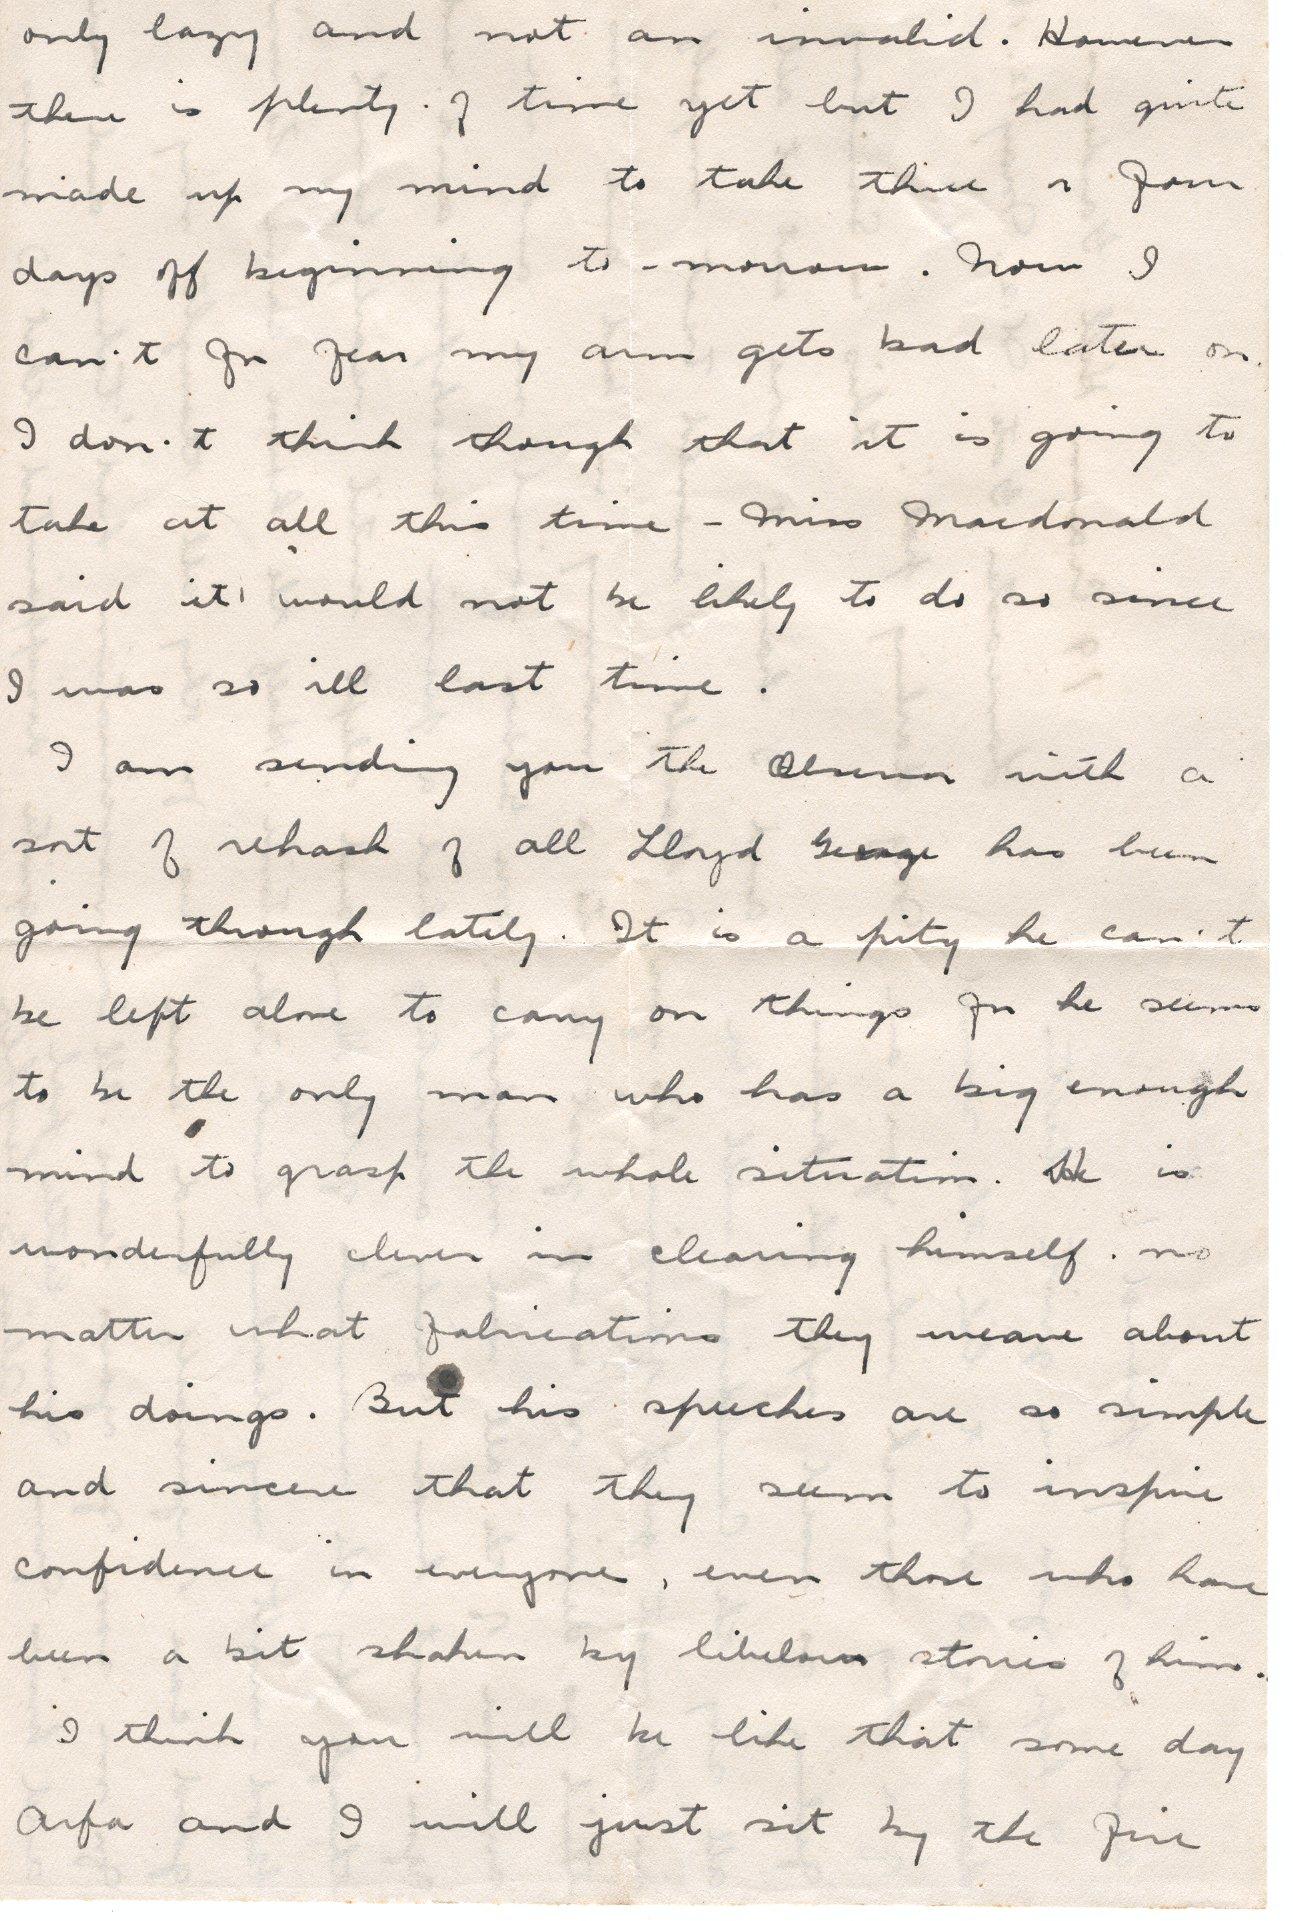 only lazy and not an invalid. However
there is plenty of time yet but I had quite
made up my mind to take three or four
days off beginning to-morrow. Now I
can't for fear my arm gets bad later on.
I don't think though that it is going to
take at all this time - Miss Macdonald
said it would not be likely to do so since
I was so ill last time.
I am sending you the Observer with a
sort of rehash of all Lloyd George has been
going through lately. It is a pity he can't
be left alone to carry on things for he seems
to be the only man who has a big enough
mind to grasp the whole situation. He is
wonderfully clever in clearing himself. no
matter what fabrications they weave about
his doings. But his speeches are so simple
and sincere that they seem to inspire
confidence in everyone, even those who have
been a bit shaken by libelous stories of him.
I think you will be like that some day
Arfa and I will just sit by the fire